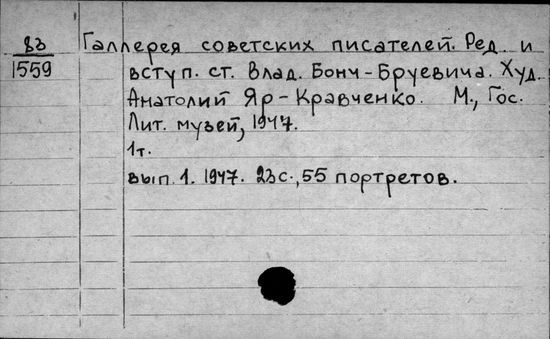 83
1559
Галлерея советских писателей. Ред. и
вступ. ст. Влад. Бонч-Бруевича. Худ.
Анатолий Яр-Кравченко. М., Гос.
Лит. музей, 1947.
1т.
вып. 1. 1947. 23с., 55 портретов.